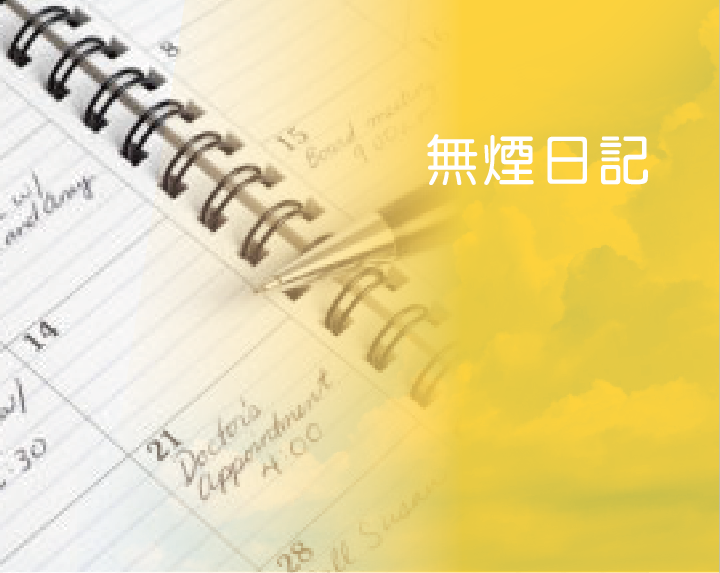 8
15
Board meeting
9:00
無煙日記
w/
and Amy
14
w/
:30
21
Doctor's
Appointment
4:00
28
Susan